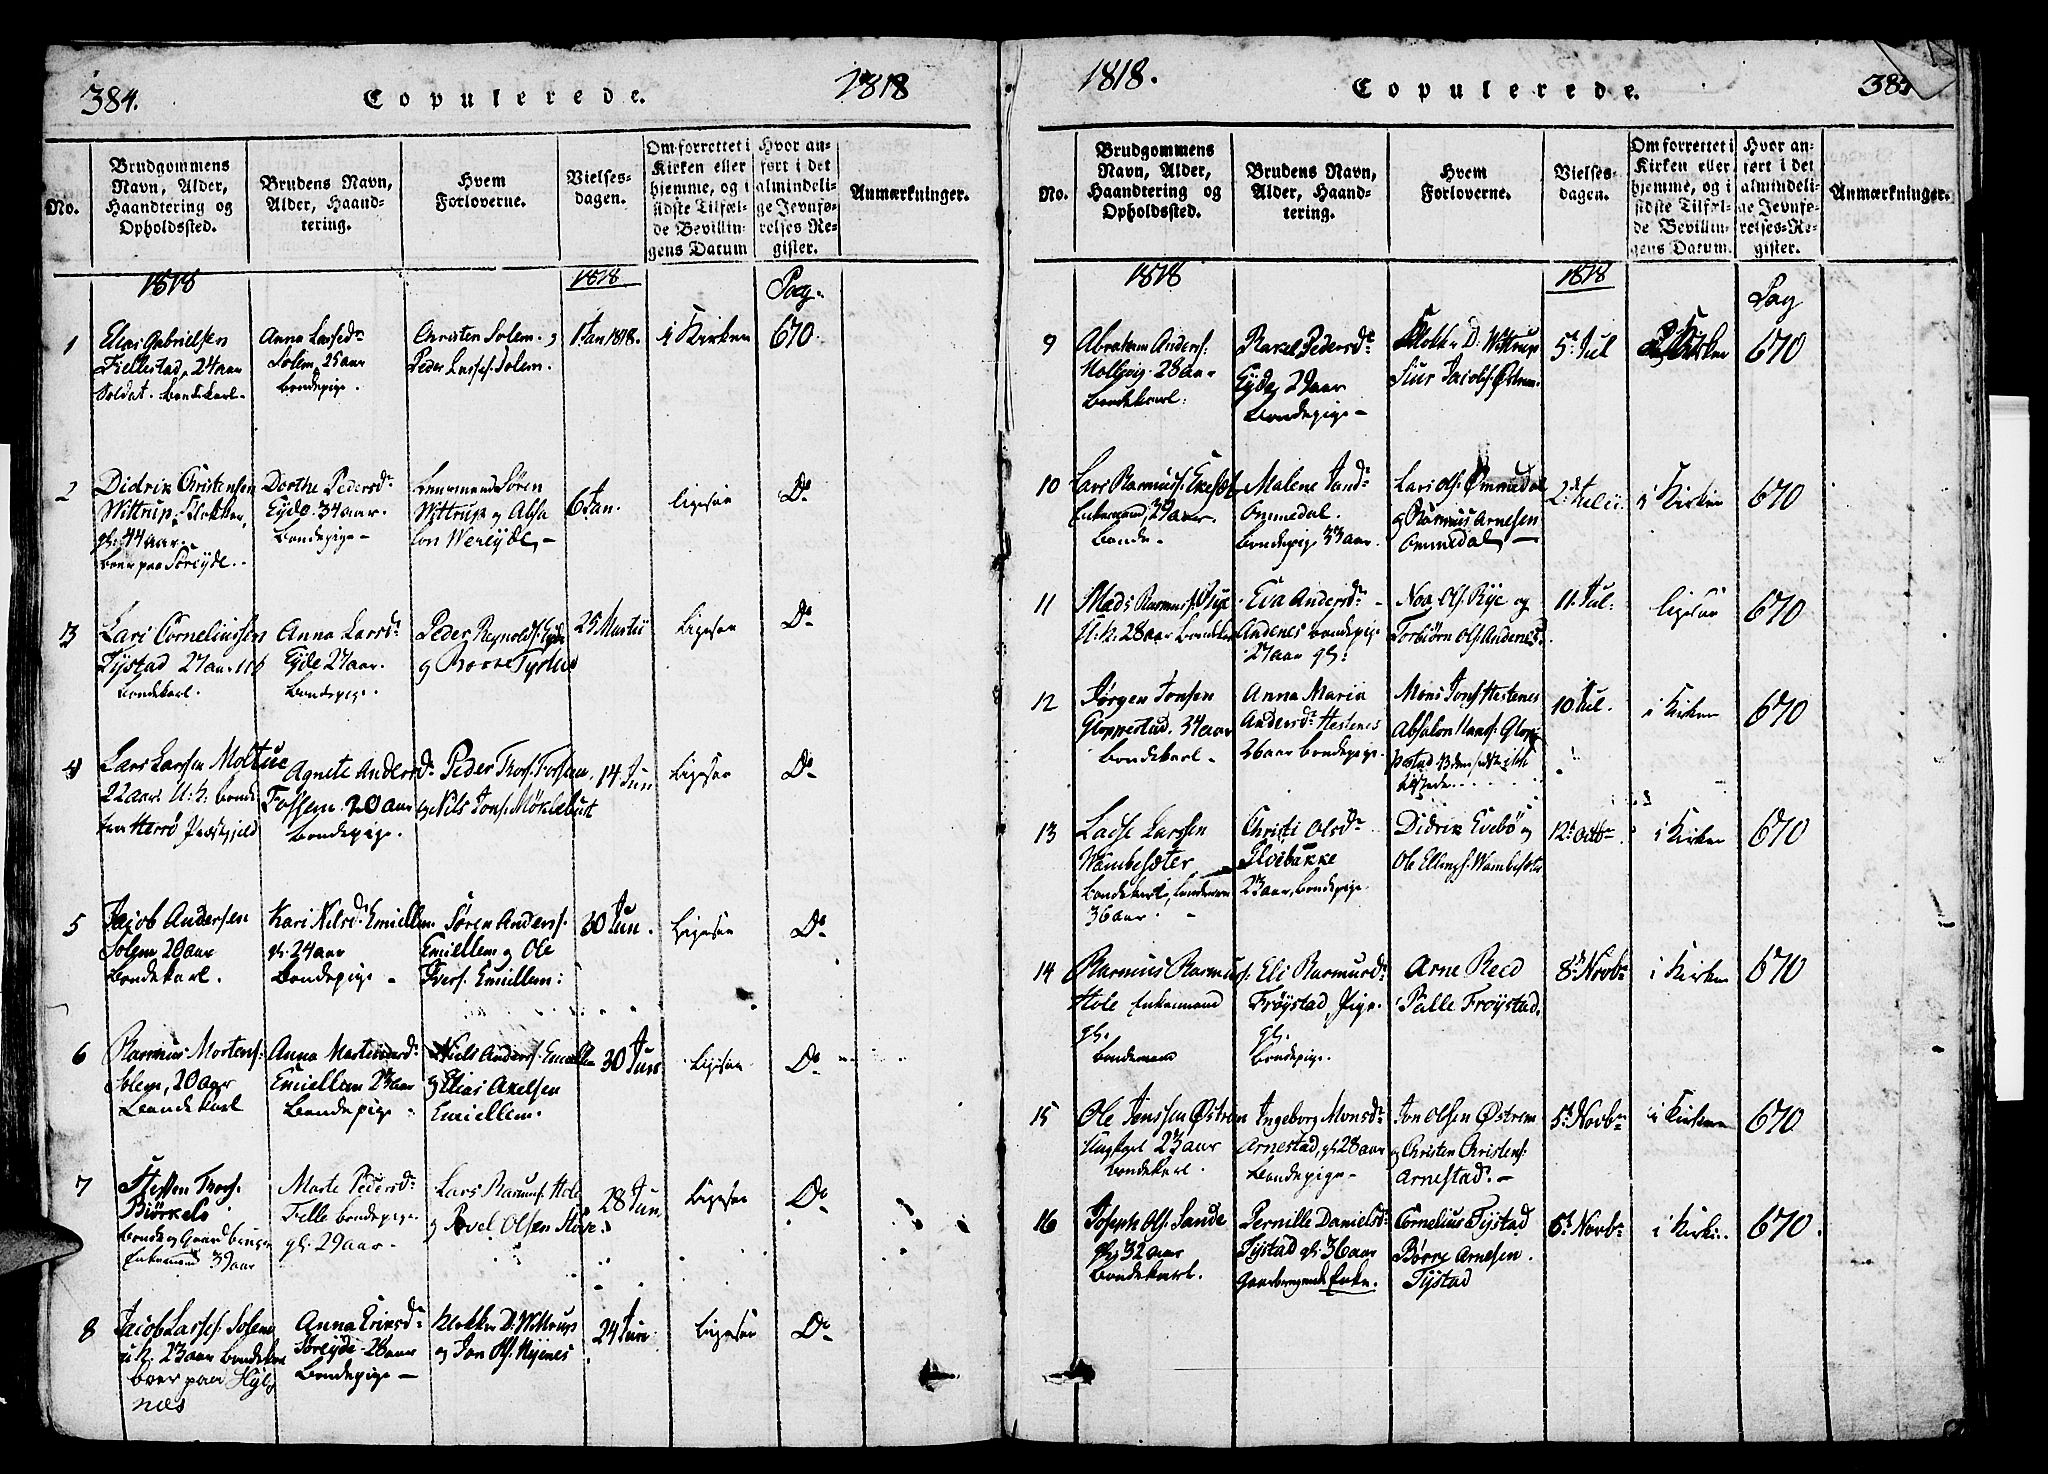 384.
Copulerede.
1818
No.
Brudgommens
Navn, Alder,
Haandtering og
Opholdssted.
Brudens Navn,
Alder, Haand-
tering.
Hvem
Forloverne.
Vielses-
dagen.
Om forrettet i
Kirken eller
hjemme, og i
sidste Tilfæl-
de Bevillin-
gens Datum
Hvor an-
ført i det
almindeli-
ge Jevnfø-
relses Re-
gister.
Anmærkninger.
1818
1818
Pag.
1
Elias Gabrielsen
24 aar
Soldat. bondekarl
Anna Lassed.
Solem 25 aar
bondepige.
Christen Solem.
Peder Lasses. Solem.
1 Jan 1818.
i Kirken
670.
2
Didrik Christensen
Wittrup, Klokker,
gl. 44 aar.
boer paa Søreyde.
Dorthe Pedersd.
Eyde. 34 aar.
bondepige
Lensmand Søren
Wittrup og Absa
lon Wereyde,
6 Jan.
ligesaa
Do
3
Lars Corneliussen
Tystad 27 aar
bondekarl.
Anna Larsd.
Eyde 27 aar.
bondepige.
Peder Reynolds. Eyde
og
25 Martii
Ligesaa
Do
4
Lars Larsen
22 aar U: K: bonde
fra Herrø Præstegjeld
Agnete Andersd.
Fossem 20 aar
bondepige.
Peder Thos. Fossem,
og Nils Jons. Møklebust
14 Jun
Ligesaa
Do
5
Jacob Andersen
Solem 20 aar
bondekarl.
Kari Nilsd. Emiellem
gl. 24 aar
bondepige
Søren Anders.
Emiellem og Ole
Ivers. Emiellem:
30 Jun.
Ligesaa
Do
6
Rasmus Mortens.
Solem, 20 aar
bondekarl
Anna
Emiellem 23 aar
bondepige
Niels Anders. Emiellem
og Elias Axelsen
Emiellem.
30 Jun
Ligesaa
Do
7
Steffen Thors.
Biørkelo
bonde og Gaardbruger
Enkemand 39 aar
Marte Pedersd.
Felle bondepige
gl. 29 aar.
Lars Rasmus. Hole
og Povel Olsen
28 Jun
Ligesaa
Do
8
Jacob Lasses. Solem
u. K. 23 aar
boer paa Hyl
næs
Anna Eriksd.
Søreyde 28 aar
bondepige
Klokker D: Wittrup
og Jon Ols. Hyenes
24 Jun
Ligesaa
Do
1818.
Copulerede.
385
No.
Brudgommens
Navn, Alder,
Haandtering og
Opholdssted.
Brudens Navn,
Alder, Haand-
tering.
Hvem
Forloverne.
Vielses-
dagen.
Om forrettet i
Kirken eller
hjemme, og i
sidste Tilfæl-
de Bevillin-
gens Datum.
Hvor an-
ført i det
almindeli-
ge Jevnfø-
relses-Re-
gister.
Anmærkninger.
1818
1818
Pag
9
Abraham Anders:
Hollvig. 25 aar
bondekarl.
Rakel Pedersd.
Eyde 29 aar
bondepige
Klokker D: Wittrup
Siur Jacobs. Østrem
5. Jul
i Kirken
670
10
Lars Rasmuss.
Enkemand, 39 aar.
bonde
Malene
Ommedal.
bondepige 33 aar.
Lars Ols. Ommedal
og Rasmus Arnesen
Ommedal
2. Julii.
i Kirken
670
11
Mads Rasmus. Rye
U: K. 28 aar bondekarl
Eva Andersd.
Andenes bondepige
27 aar gl:
Noa Ols. Rye og
Torbiørn Ols. Andenes.
11. Jul.
ligesaa
670
12
Jørgen Jonsen
Gloppestad. 34 aar
bondekarl
Anna Maria
Andersd. Hestenes
26 aar bondepige.
Mons Jons. Hestenes
Absalon Hans. Glop
pestad
10 Jul.
i Kirken
670
13
Lasse Larssen
Wambesæter
bondekarl,
36 aar.
Christi Olsd.
23 aar, bondepige.
Didrik Evebø og
Ole Ellings. Wambesæter
12. Octbr
i Kirken
670
14
Rasmus Rasmus.
Hole Enkemand
gl.
bondemand
Eli Rasmusd.
Frøystad, Pige.
gl.
bondepige.
Arne Reed
Palle Frøystad.
8. Novbr
i Kirken
670
15
Ole Jenssen Østrem
Ungkarl 23 aar
bondekarl.
Ingeborg Monsd.
Arnestad, gl. 28 aar
bondepige
Jon Olsen Østrem
og Christen Christens.
Arnestad.
5. Novbr
i Kirken
670
16
Joseph Ols. Sande
gl. 32 aar
bondekarl.
Pernille Danielsd.
Tystad gl. 36 aar
Gaardbrugende Enke.
Cornelius Tystad
Børre Arnesen.
Tystad
6. Novbr
i Kirken.
670.